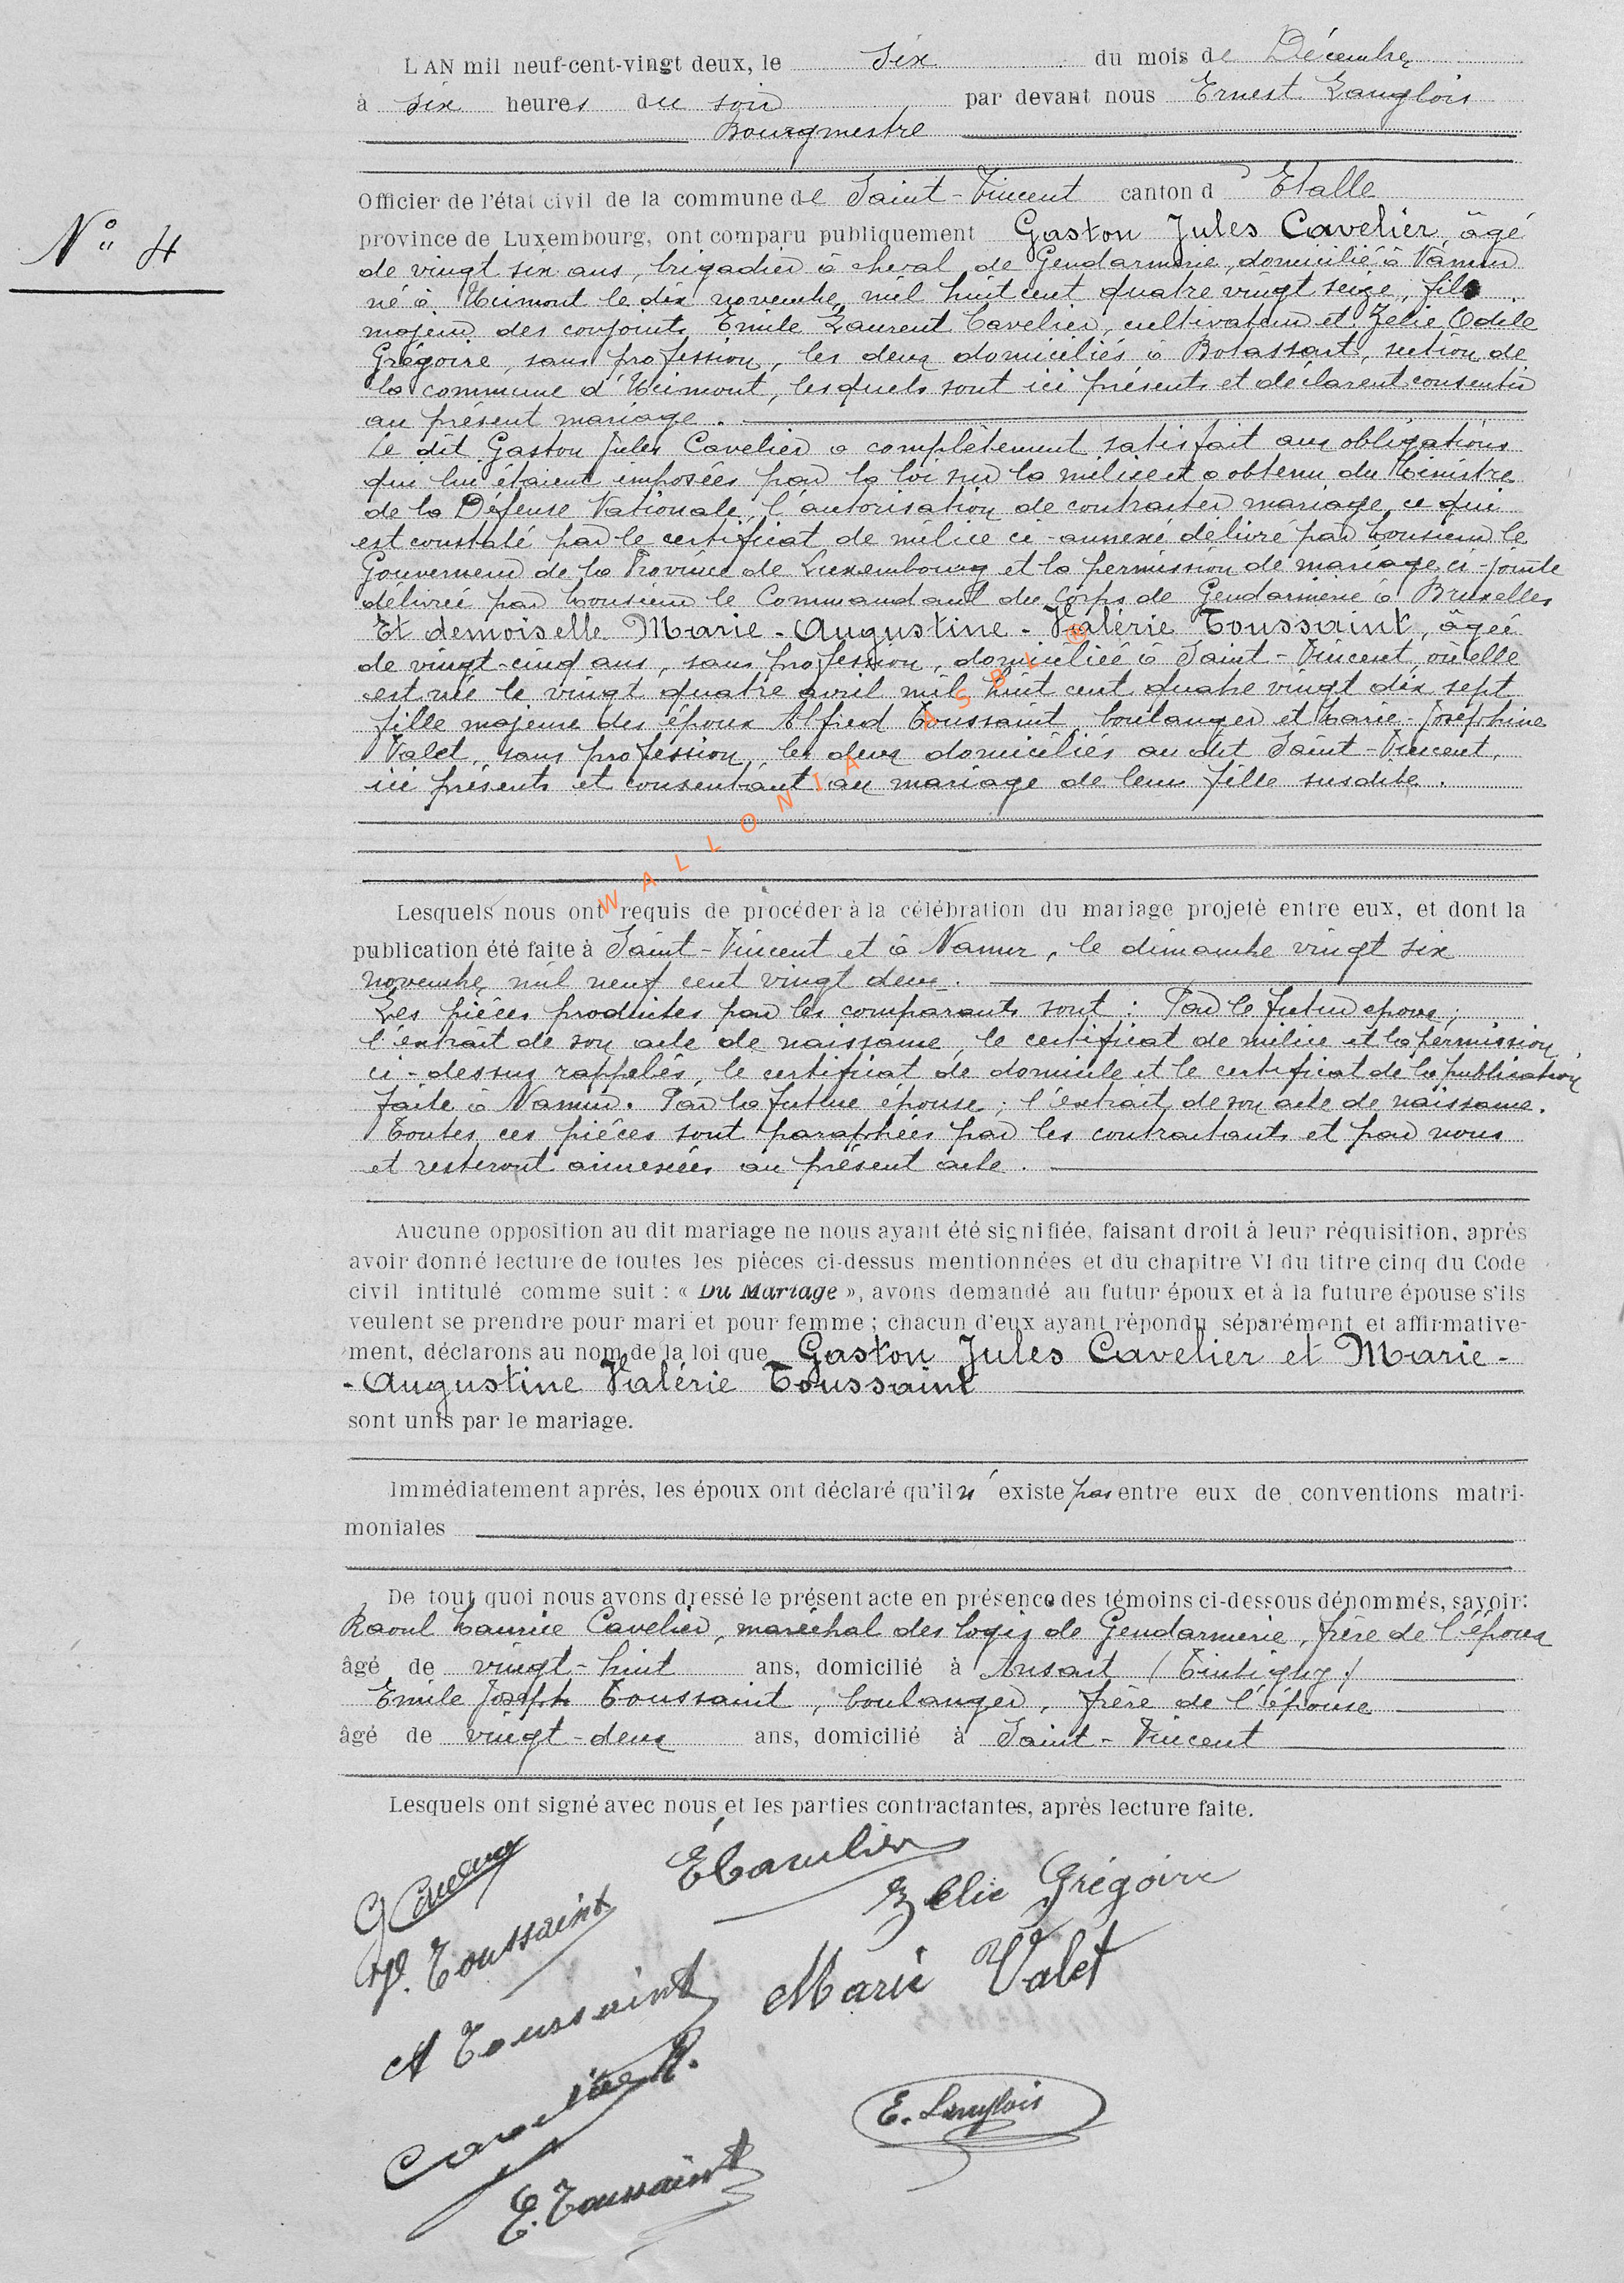 L'AN mil neuf-cent-vingt deux, le six du mois de Décembre
à six heures du soir par devant nous Ernest Langlois
Bourgmestre
Officier de l'état civil de la commune de Saint-Vincent canton d'Etalle
N° 4
province de Luxembourg, ont comparu publiquement Gaston Jules Cavelier, âgé
de vingt six ans, brigadier à cheval de Gendarmerie, domicilié à Namur
né à Ucimont le dix novembre mil huit cent quatre vingt seize, fils
majeur des conjoints Emile Laurent Cavelier, cultivateur et Zélie Odile
Grégoire, sans profession, les deux domiciliés à Botassart, section de
la commune d'Ucimont, lesquels sont ici présents et déclarent consentir
au présent mariage.
Le dit Gaston Jules Cavelier a complètement satisfait aux obligations
qui lui étaient imposées par la loi sur la milice et a obtenu du Ministre
de la Défense Nationale, l'autorisation de contracter mariage, ce qui
est constaté par le certificat de milice ci-annexé délivré par Monsieur le
Gouverneur de la Province de Luxembourg et la permission de mariage ci-jointe
délivrée par Monsieur le Commandant du Corps de Gendarmerie à Bruxelles
Et demoiselle Marie-Augustine-Valérie Toussaint, âgée
de vingt-cinq ans, sans profession, domiciliée à Saint-Vincent, où elle
est née le vingt quatre avril mil huit cent quatre vingt dix sept
fille majeure des époux Alfred Toussaint, boulanger et Marie-Joséphine
Valet, sans profession, les deux domiciliés au dit Saint-Vincent,
ici présents et consentant au mariage de leur fille susdite.
WALLONIA ASBL ®
Lesquels nous ont requis de procéder à la célébration du mariage projeté entre eux, et dont la
publication été faite à Saint-Vincent et à Namur, le dimanche vingt six
novembre mil neuf cent vingt deux.
Les pièces produites par les comparants sont : Par le futur époux ;
l'extrait de son acte de naissance, le certificat de milice et la permission
ci-dessus rappelés, le certificat de domicile et le certificat de la publication
faite à Namur. Par la future épouse ; l'extrait de son acte de naissance.
Toutes ces pièces sont paraphées par les contractants et par nous
et resteront annexées au présent acte.
Aucune opposition au dit mariage ne nous ayant été signifiée, faisant droit à leur réquisition, après
avoir donné lecture de toutes les pièces ci-dessus mentionnées et du chapitre VI du titre cinq du Code
civil intitulé comme suit : « Du Mariage », avons demandé au futur époux et à la future épouse s'ils
veulent se prendre pour mari et pour femme ; chacun d'eux ayant répondu séparément et affirmative-
ment, déclarons au nom de la loi que Gaston Jules Cavelier et Marie-
-Augustine Valérie Toussaint
sont unis par le mariage.
Immédiatement après, les époux ont déclaré qu'il n'existe pas entre eux de conventions matri-
moniales
De tout quoi nous avons dressé le présent acte en présence des témoins ci-dessous dénommés, savoir:
Raoul Maurice Cavelier, maréchal des logis de Gendarmerie, frère de l'époux
âgé de vingt-huit ans, domicilié à Ansart (Tintigny)
Emile Joseph Toussaint, boulanger, frère de l'épouse
âgé de vingt-deux ans, domicilié à Saint-Vincent
Lesquels ont signé avec nous et les parties contractantes, après lecture faite.
G Cavelier
E Cavelier
Zélie Grégoire
V. Toussaint
Marie Valet
A Toussaint
Cavelier R.
E. Langlois
E. Toussaint